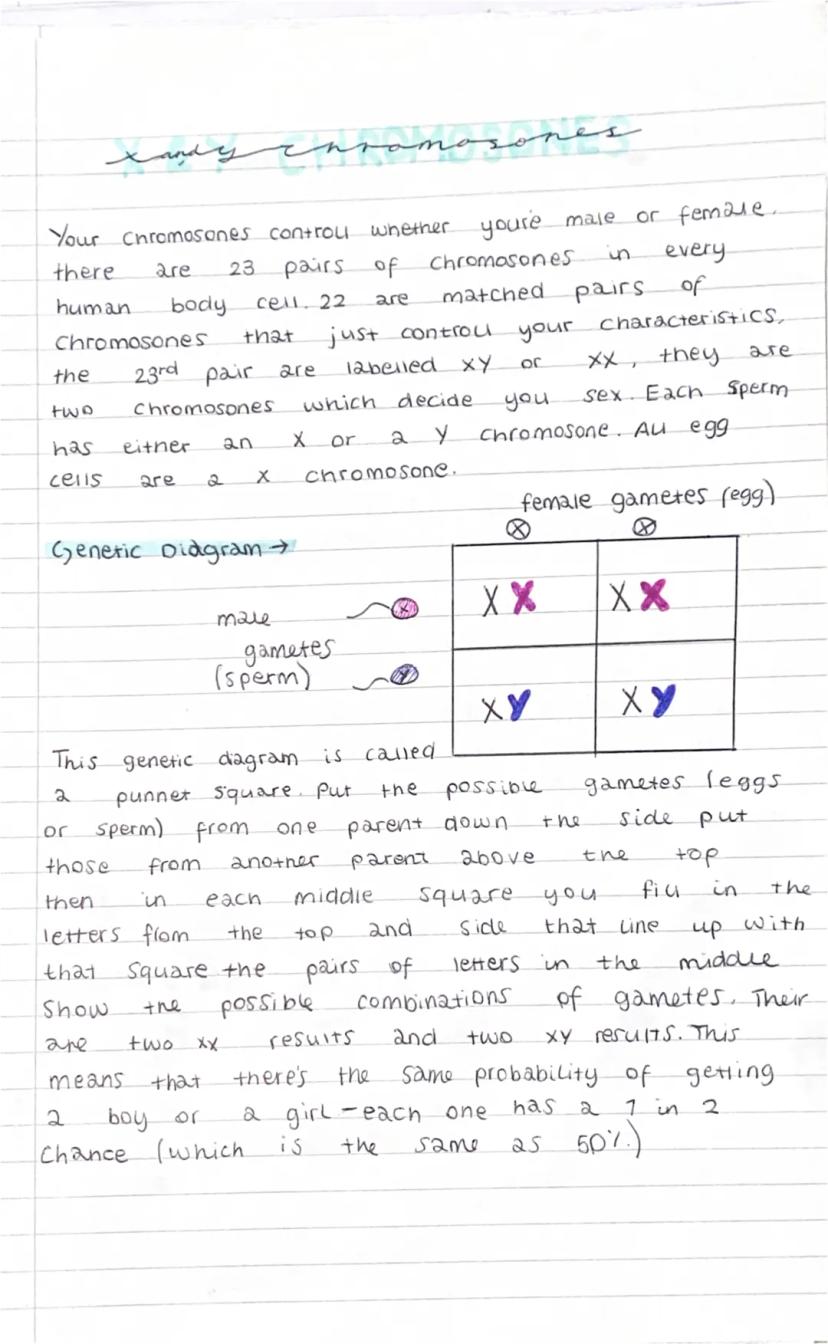 X & Y CHROMOSONES
x and y chromosones
Your chromosones controll whether you're male or female.
there are 23 pairs of chromosones in every
human body cell. 22 are matched pairs of
chromosones that just controll your characteristics,
the 23rd pair are labelled XY or XX, they are
two chromosones which decide you sex. Each sperm
has either an X or a Y chromosone. All egg
cells are a X chromosone.
female gametes (egg)
X X
Genetic Diagram →
male
gametes
(sperm)
X
Y
X X X X
X Y X Y
This genetic diagram is called
a punnet square. Put the possible gametes (eggs
or sperm) from one parent down the side put
those from another parent above the top
then in each middle square you fill in the
letters from the top and side that line up with
that square the pairs of letters in the middle
show the possible combinations of gametes. Their
are two xx results and two xy results. This
means that there's the same probability of getting
a boy or a girl - each one has a 1 in 2
Chance (which is the same as 50%.)